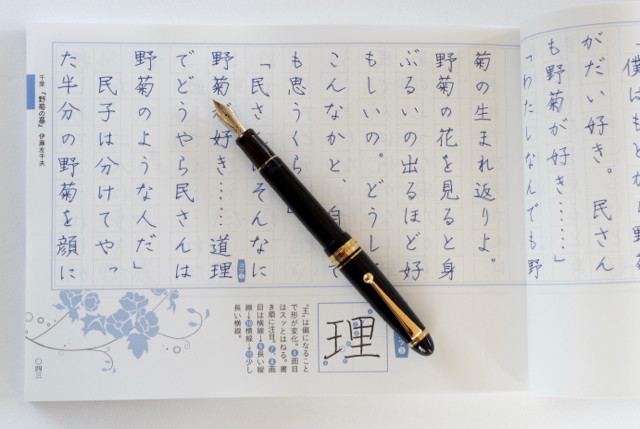 僕はもと
がだい好き。民さん
も野菊が好き……」
「わたしなんでも野
菊の生まれ返りよ。
野菊の花を見ると身
ぶるいの出るほど好
もしいの。どうし
こんなかと、自
も思うくら
「民さ そんなに
野菊 好き……道理
でどうやら民さんは
野菊のような人だ」
民子は分けてやっ
た半分の野菊を顔に
千葉『野菊の墓』 伊藤左千夫
理
“王”は偏になること
で形が変化。❸画目
はスッとはねる。書
き順に注目。❼、❽画
目は横線→❾長い縦
線→❿横線→⓫少し
長い横線。
〇四三